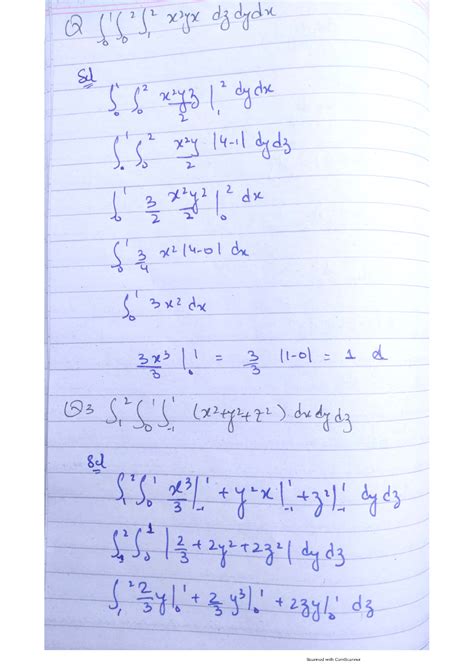 Q ∫₀¹ ∫₀² ∫₁² x²yx dz dy dx
Sol
∫₀¹ ∫₀² x²yz/2 |₁² dy dx
∫₀¹ ∫₀² x²y/2 |4-1| dy dz
∫₀¹ 3/2 x²y²/2 |₀² dx
∫₀¹ 3/4 x² |4-0| dx
∫₀¹ 3x² dx
3x³/3 |₀¹ = 3/3 |1-0| = 1
Q3 ∫₁² ∫₀¹ ∫₋₁¹ (x²+y²+z²) dx dy dz
Sol
∫₁² ∫₀¹ x³/3 |₋₁¹ + y²x |₋₁¹ + z² |₋₁¹ dy dz
∫₁² ∫₀¹ |2/3 + 2y² + 2z²| dy dz
∫₁² 2/3 y |₀¹ + 2/3 y³ |₀¹ + 2zy |₀¹ dz
Scanned with CamScanner